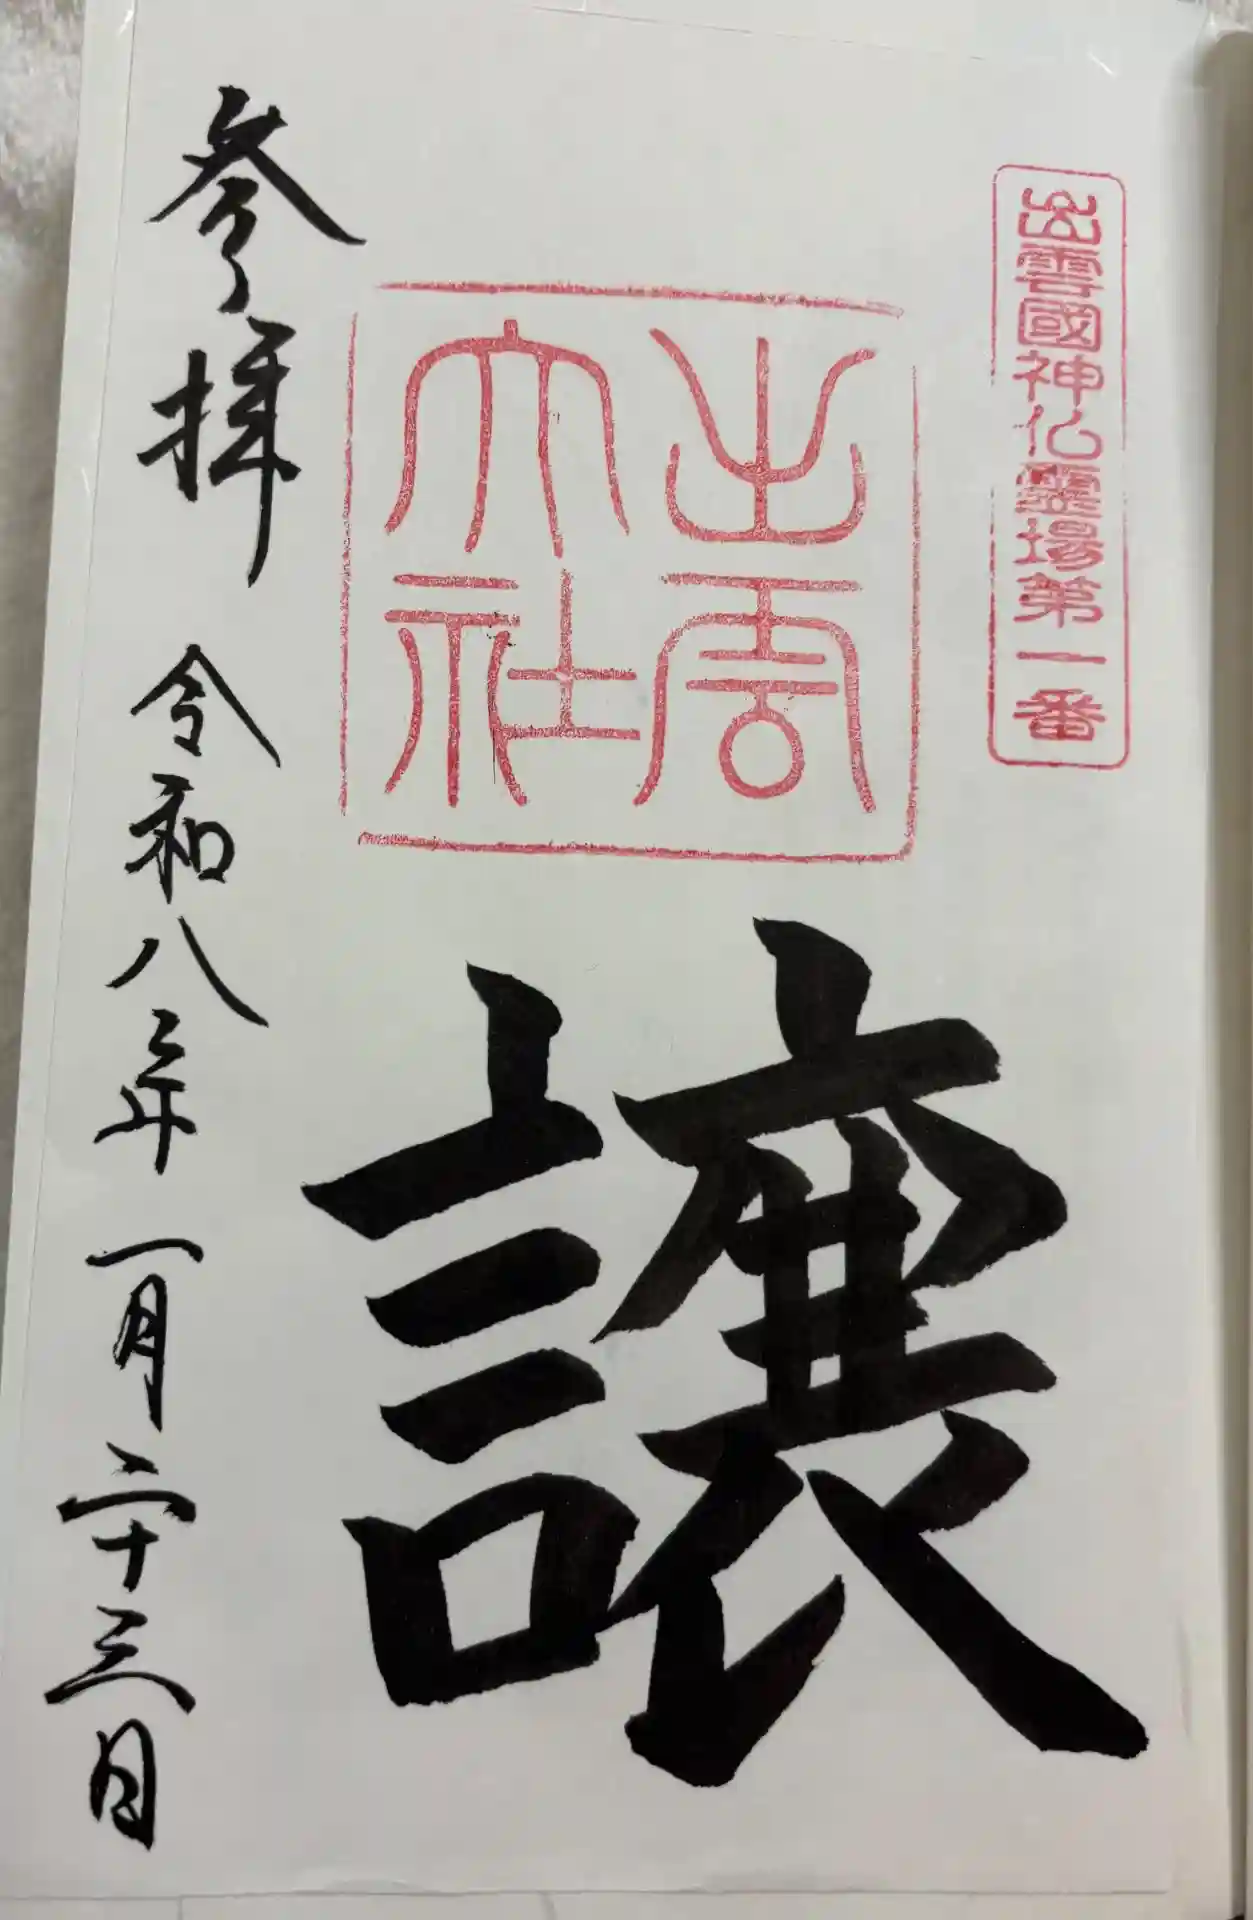 出雲國神仏霊場第一番
出雲
大社
譲
参拝 令和八年一月二十三日